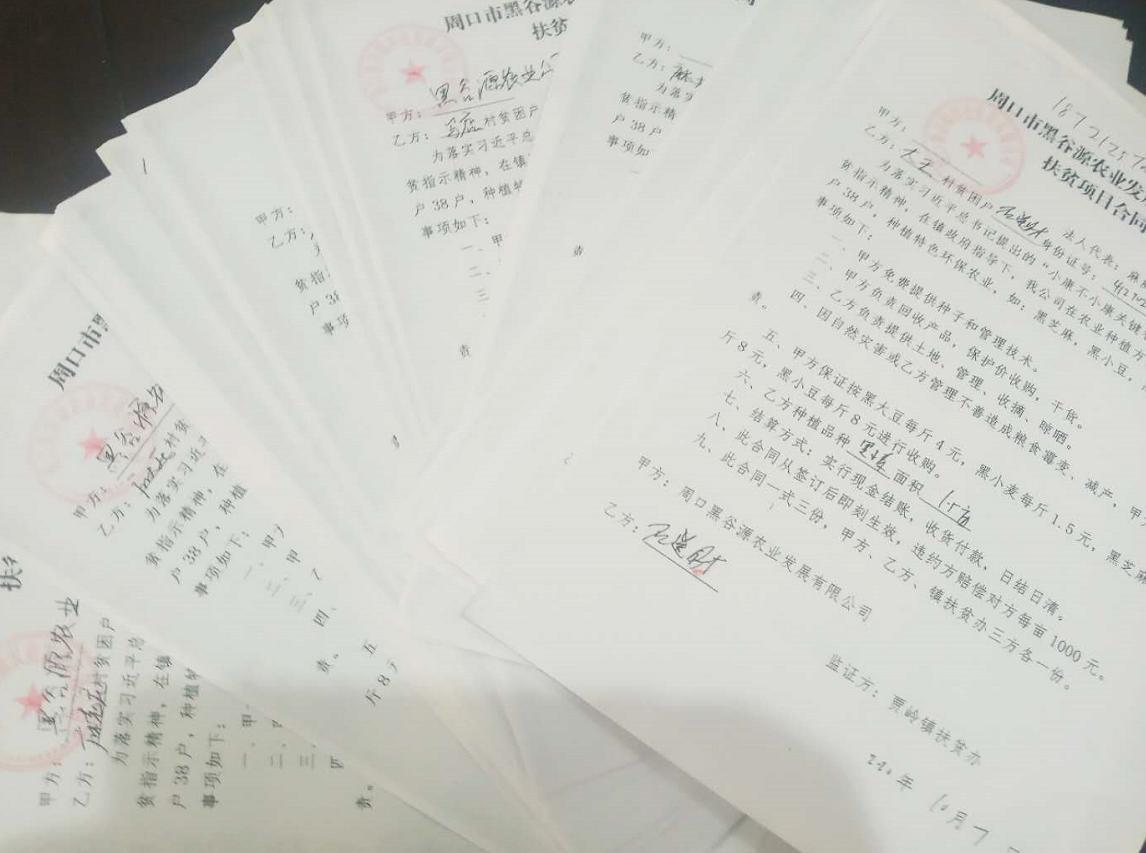 周口市黑谷源农业发
扶贫项目合同
甲方： 法人代表：麻
乙方：大王村贫困户 身份证号：
为落实习近平总书记提出的“小康不小康关键
贫指示精神，在镇政府指导下，我公司在农业种植方
户38户，种植特色环保农业，如：黑芝麻，黑小豆，
事项如下：
一、甲方免费提供种子和管理技术。
二、甲方负责回收产品，保护价收购，干货。
三、乙方负责提供土地、管理、收摘、晾晒。
四、因自然灾害或乙方管理不善造成粮食霉变、减产，甲
责。
五、甲方保证按黑大豆每斤4元，黑小麦每斤1.5元，黑芝麻
斤8元，黑小豆每斤8元进行收购。
六、乙方种植品种 面积
七、结算方式：实行现金结账，收货付款，日结日清。
八、此合同从签订后即刻生效，违约方赔偿对方每亩1000元。
九、此合同一式三份，甲方、乙方、镇扶贫办三方各一份。
甲方：周口黑谷源农业发展有限公司
乙方：
监证方：贾岭镇扶贫办
年10月7
甲方：
乙方：
为落
贫指示精
户38户
事项如
周口市黑谷源农
扶贫
甲方：黑谷源农业公
乙方： 村贫困户
为落实习近平总
贫指示精神，在镇
户38户，种植特
事项如下：
一、甲
二、
三
责
甲方：
乙方：
贫指
户3
事项
周口市黑
甲方：黑谷源
乙方： 村贫
为落实习近
贫指示精神，在
户38户，种植
事项如下：
一、甲方
二、甲
三、乙
四、
责。
五
斤8元
扶
甲方：黑谷源农业
乙方： 村贫困户
为落实习近平总
贫指示精神，在镇
户38户，种植
事项如下：
一、甲
二、
三、
四
责。